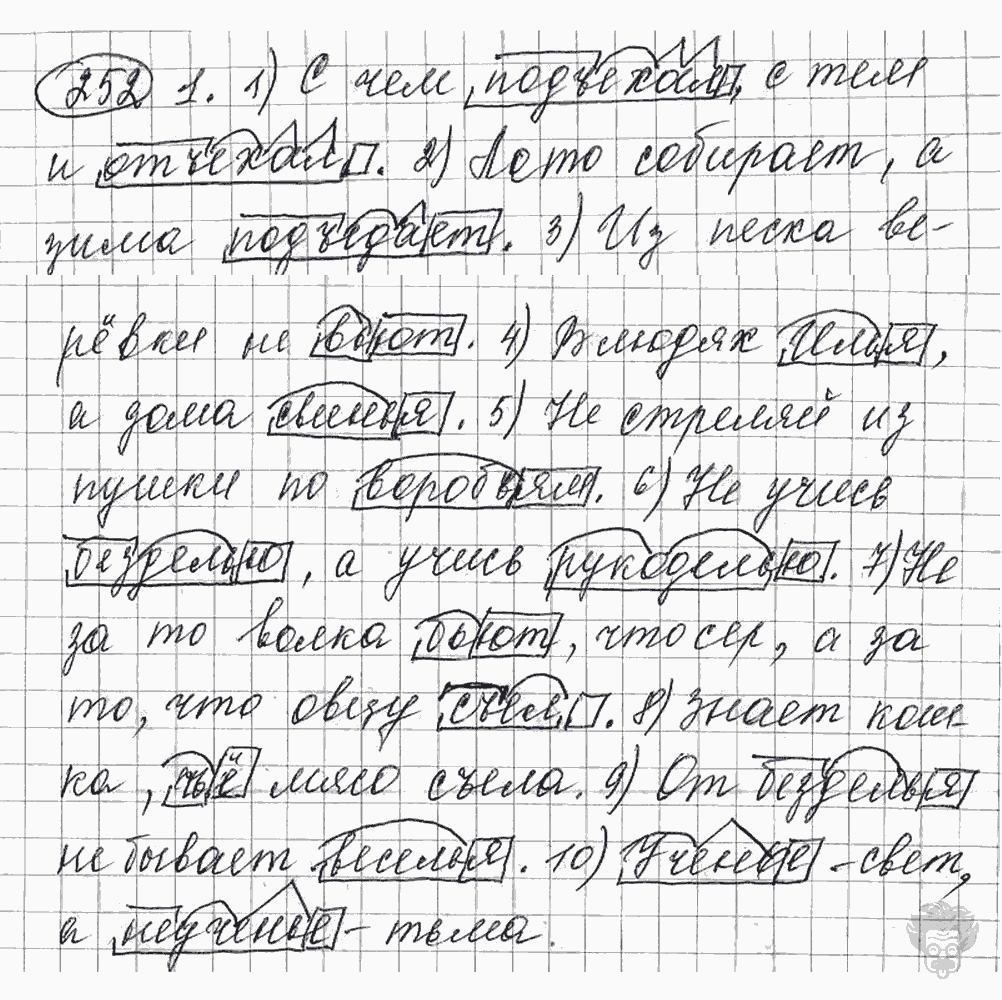 252 1. 1) С чем подъехал, с тем
и отъехал. 2) Лето собирает, а
зима подъедает. 3) Из песка ве-
рёвки не вьют. 4) В людях Илья,
а дома свинья. 5) Не стреляй из
пушки по воробьям. 6) Не учись
безделью, а учись рукоделью. 7) Не
за то волка бьют, что сер, а за
то, что овцу съел. 8) Знает кош-
ка, чьё мясо съела. 9) От безделья
не бывает веселья. 10) Ученье - свет,
а неученье - тьма.